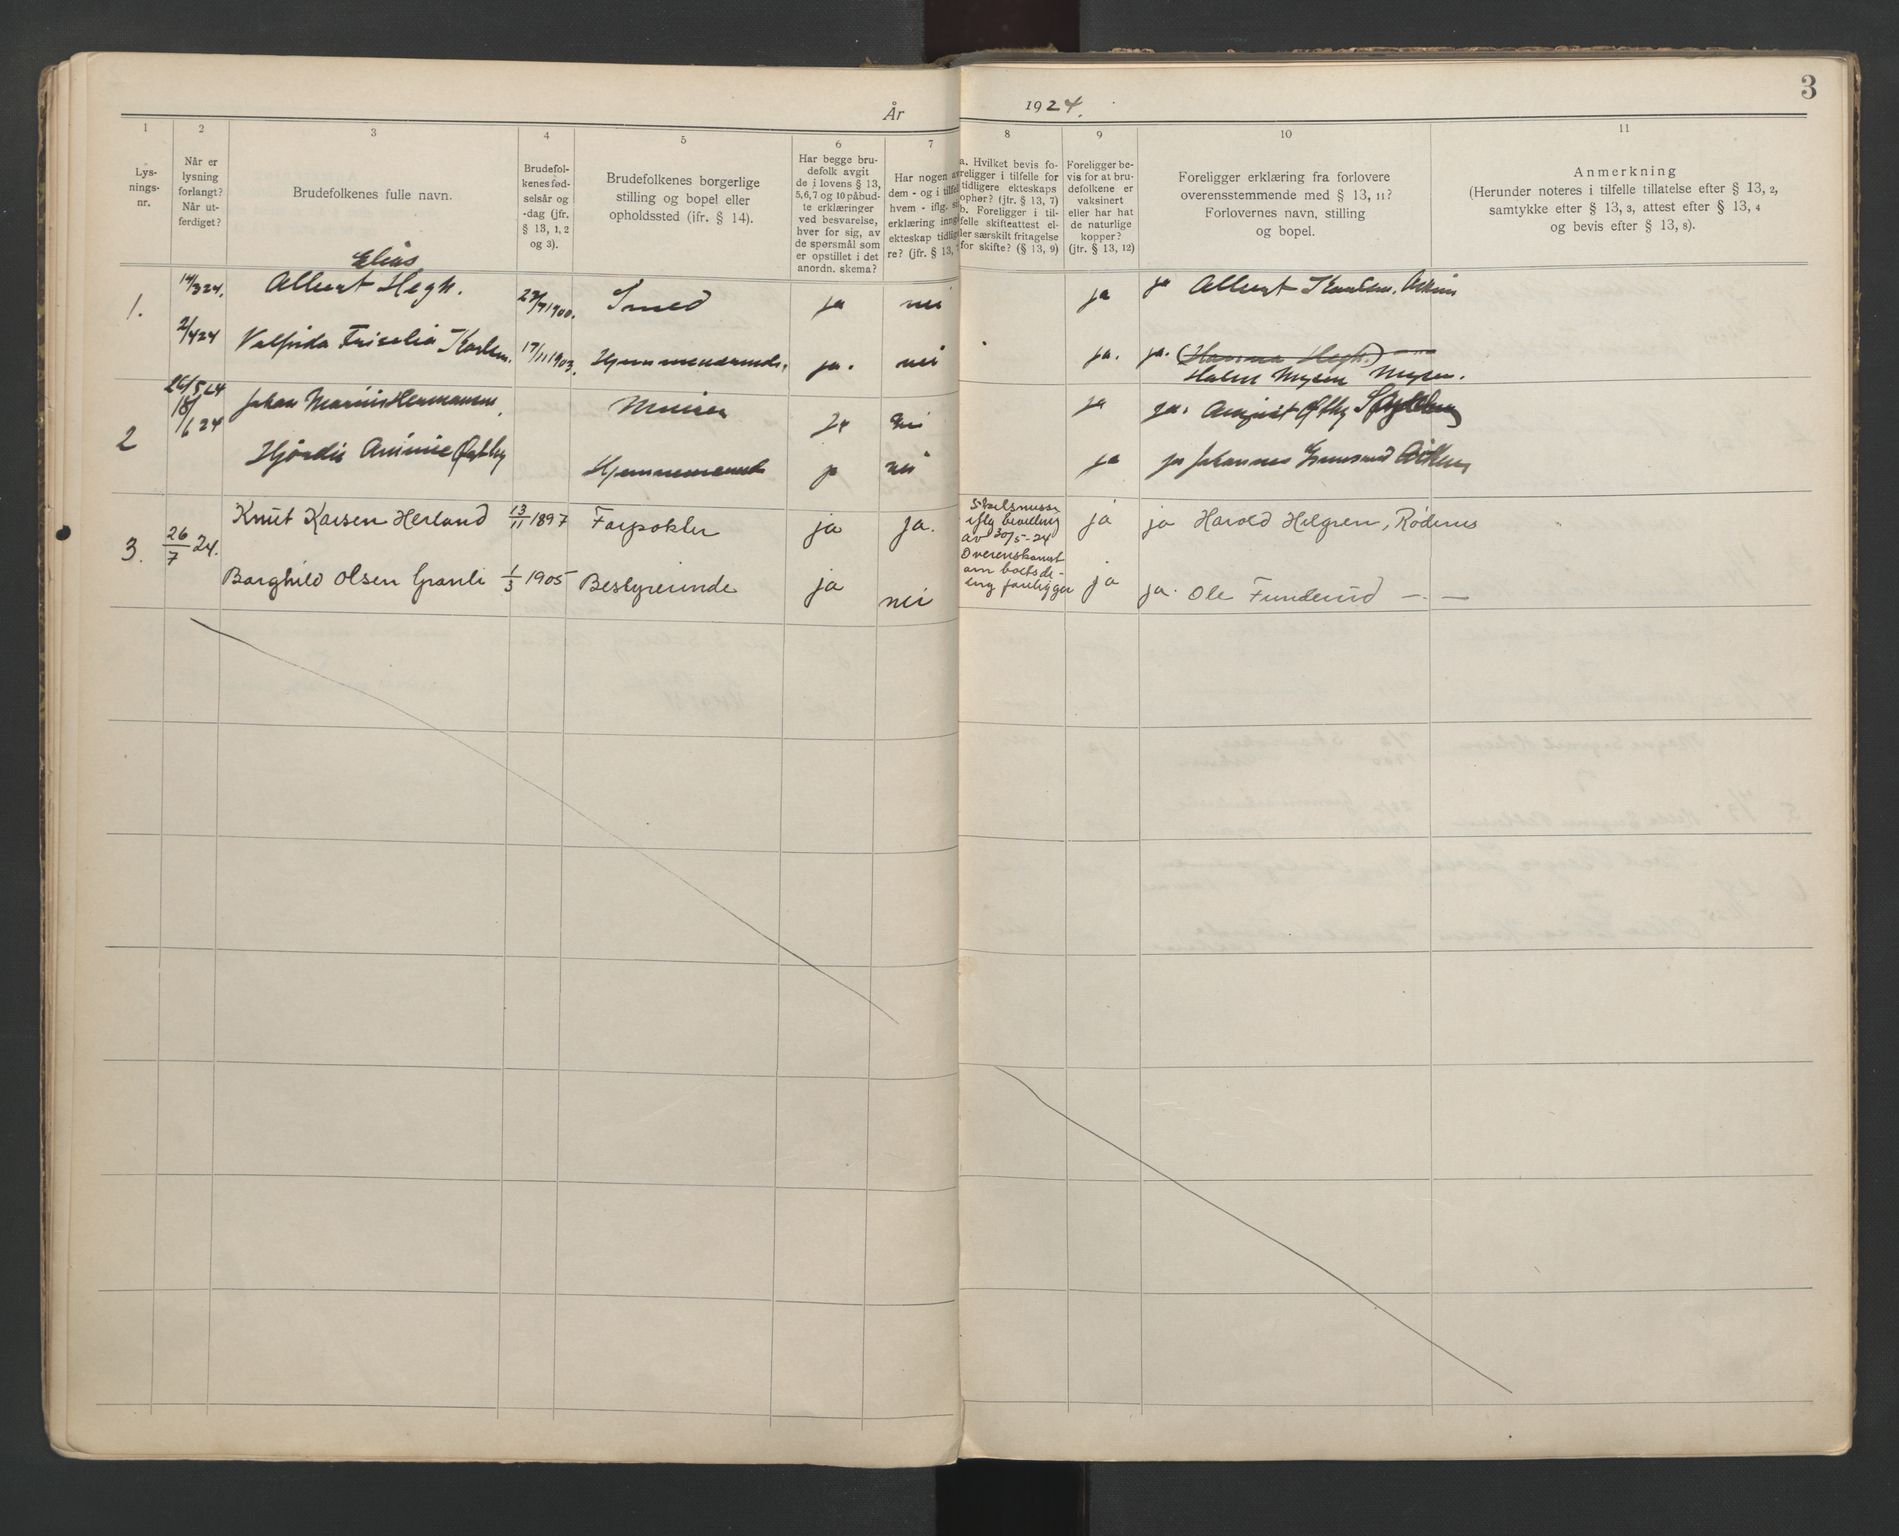 3
År 1924.
1 2 3 4 5 6 7 8 9 10 11
Lys-
nings-
nr.
Når er
lysning
forlangt?
Når ut-
ferdiget?
Brudefolkenes fulle navn.
Brudefol-
kenes fød-
selsår og
-dag (jfr.
§ 13, 1, 2
og 3).
Brudefolkenes borgerlige
stilling og bopel eller
opholdssted (ifr. § 14).
Har begge bru-
defolk avgit
de i lovens § 13,
5,6,7 og 10 påbud-
te erklæringer
ved besvarelse,
hver for sig, av
de spørsmål som
er opstillet i det
anordn. skema?
Har nogen av
dem - og i tilfel
hvem - iflg. si
erklæring inng
ekteskap tidlig
re? (jfr. § 13,
a. Hvilket bevis fo-
religger i tilfelle for
tidligere ekteskaps
ophør? (jtr. § 13, 7)
b. Foreligger i til-
felle skifteattest el-
ler særskilt fritagelse
for skifte? (§ 13, 9)
Foreligger be-
vis for at bru-
defolkene er
vaksinert
eller har hat
de naturlige
kopper?
(jtr. § 13, 12)
Foreligger erklæring fra forlovere
overensstemmende med § 13, 11?
Forlovernes navn, stilling
og bopel.
Anmerkning
(Herunder noteres i tilfelle tillatelse efter § 13, 2,
samtykke efter § 13, 3, attest efter § 13, 4
og bevis efter § 13, 8).
Elias
1. 14/3 24. Albert Hegh. 23/7 1900. Smed ja nei ja ja Albert Karlsen, Askim
2/4 24 Valfrida Friselia Karlsen. 17/11 1903. ja. nei ja. ja. (Hanna Hegh.)
Halv Mysen Mysen.
2 26/5 24 Johan Marius Hermansen, Murer Ja nei ja ja. August Østby
18/6 24 Hjørdis Ammie Østby ja nei ja ja Johannes Askim
3. 26/7 24. Knut Karsen Herland 13/11 1897 ja ja. ja ja Harold Helgren, Rødenes
Skilsmisse
iflg bevilling
av 30/5-24
Overenskomst
om boetsde-
ling foreligger
Borghild Olsen Granli 1/3 1905 Bestyrerinde ja nei ja ja. Ole Funderud — —